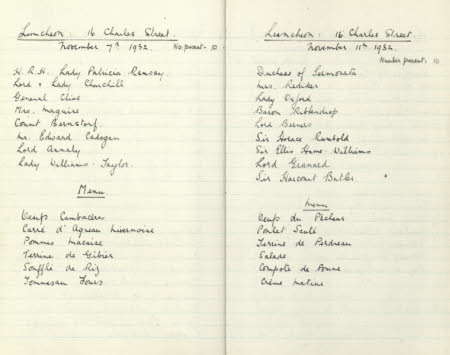 Luncheon: 16 Charles Street.
November 7th 1932. No present - 10
H.R.H. Lady Patricia Ramsay.
Lord & Lady Churchill
General Clive
Mrs. Maguire
Count Bernstorf.
Mr. Edward Cadogan
Lord Annaly
Lady Williams-Taylor.
Menu
Oeufs Cambacérès
Carré d'Agneau Nivernoise
Pommes Macaire
Terrine de Gibier
Soufflé de Riz
Luncheon: 16 Charles Street.
November 11th 1932.
Number present. 10
Duchess of Sermoneta.
Mrs.
Lady Oxford
Baron Ribbendrop
Lord Berners
Sir Horace Rumbold
Sir Ellis Hume-Williams
Lord Granard
Sir Harcourt Butler.
Menu
Oeufs du Pêcheur
Poulet Sauté
Terrine de Perdreau
Salade
Compote de
Crème